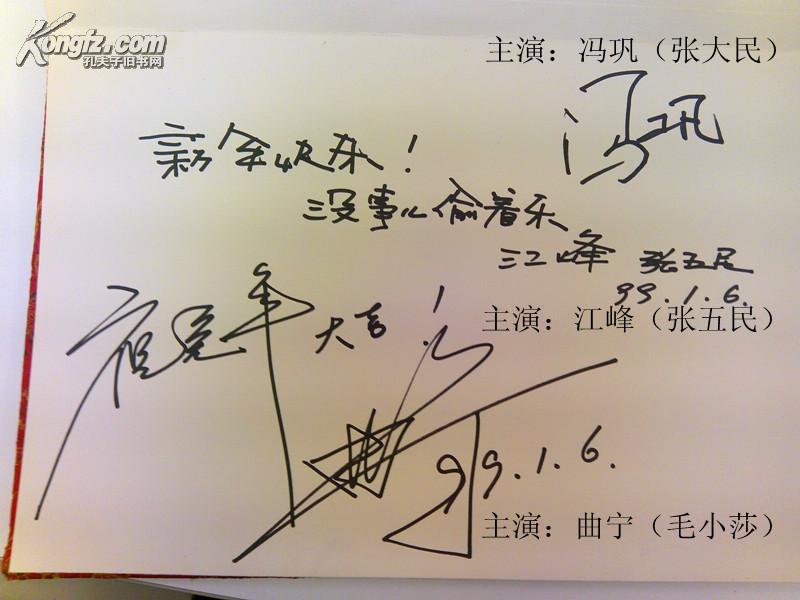 Kongfz.com
孔夫子旧书网
主演：冯巩（张大民）
冯巩
新年快乐！
没事儿偷着乐
江峰 张五民
99.1.6.
主演：江峰（张五民）
祝兔年大吉！
曲宁
99.1.6.
主演：曲宁（毛小莎）